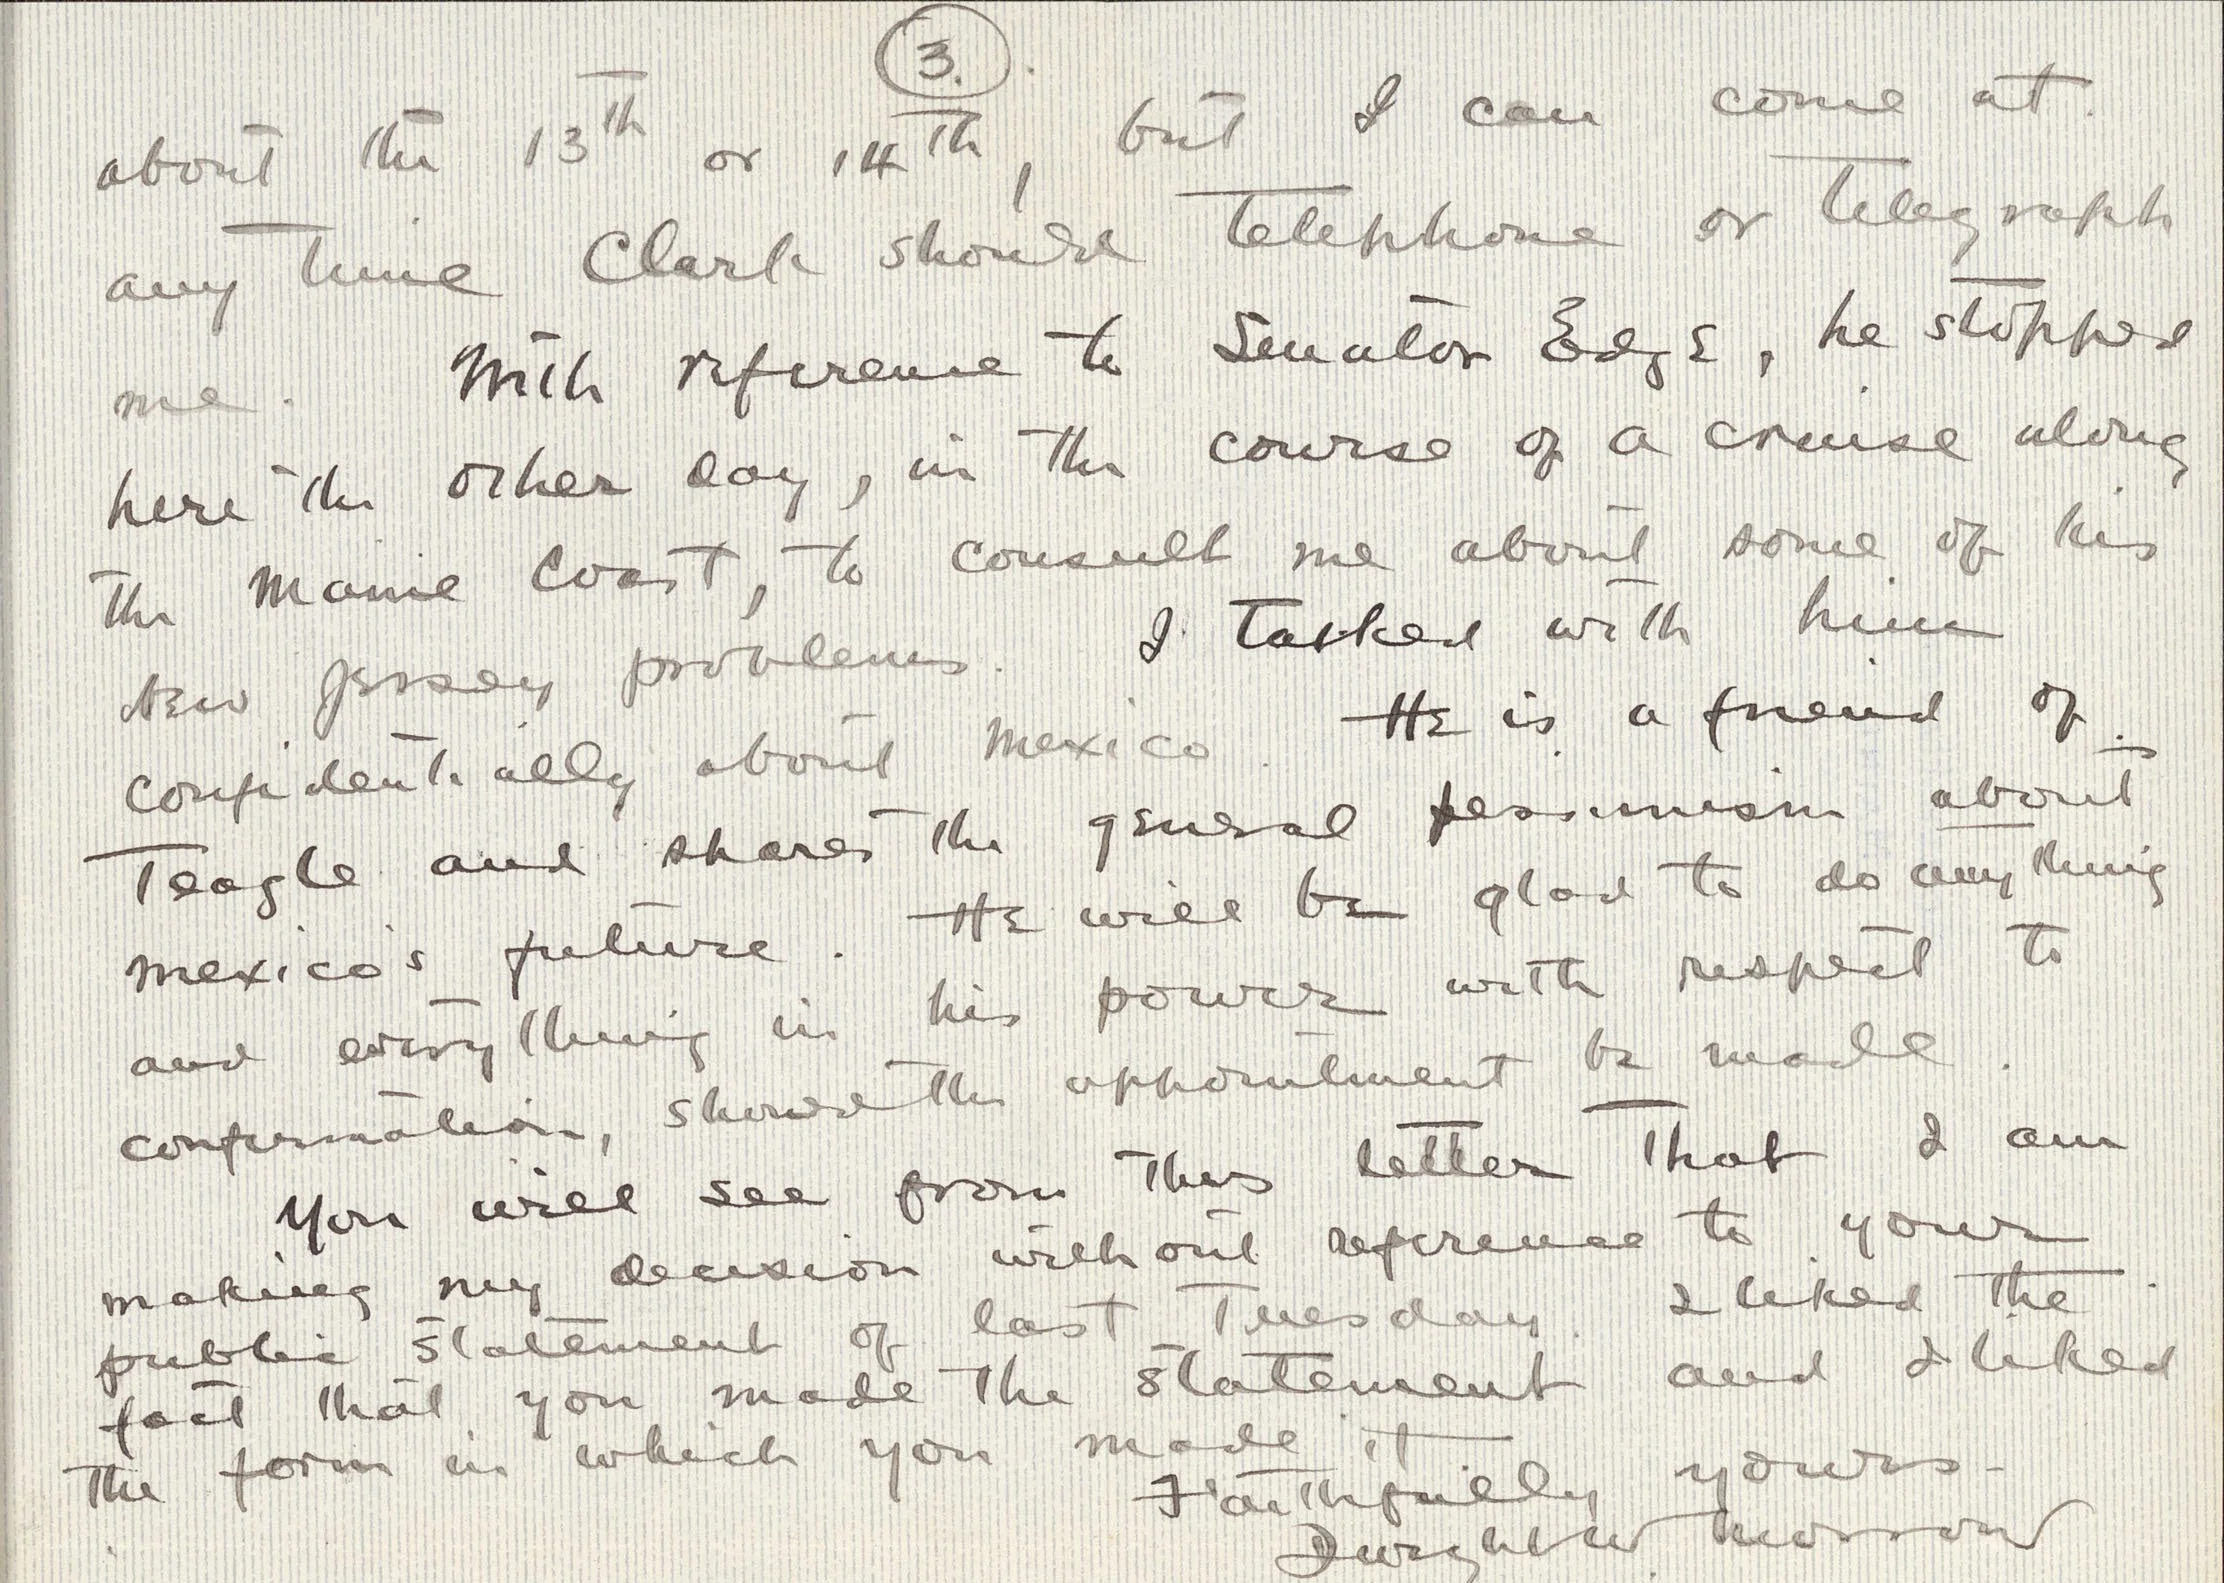 3.
about the 13th or 14th, but I can come at
any time Clark should telephone or telegraph
me. With reference to Senator Edge, he stopped
here the other day, in the course of a cruise along
the Maine Coast, to consult me about some of his
New Jersey problems. I talked with him
confidentially about Mexico. He is a friend of
Teagle and shares the general pessimism about
Mexico's future. He will be glad to do anything
and everything in his power with respect to
confirmation, should the appointment be made.
You will see from this letter that I am
making my decision without reference to your
public statement of last Tuesday. I liked the
fact that you made the statement and I liked
the form in which you made it
Faithfully yours-
Dwight W Morrow